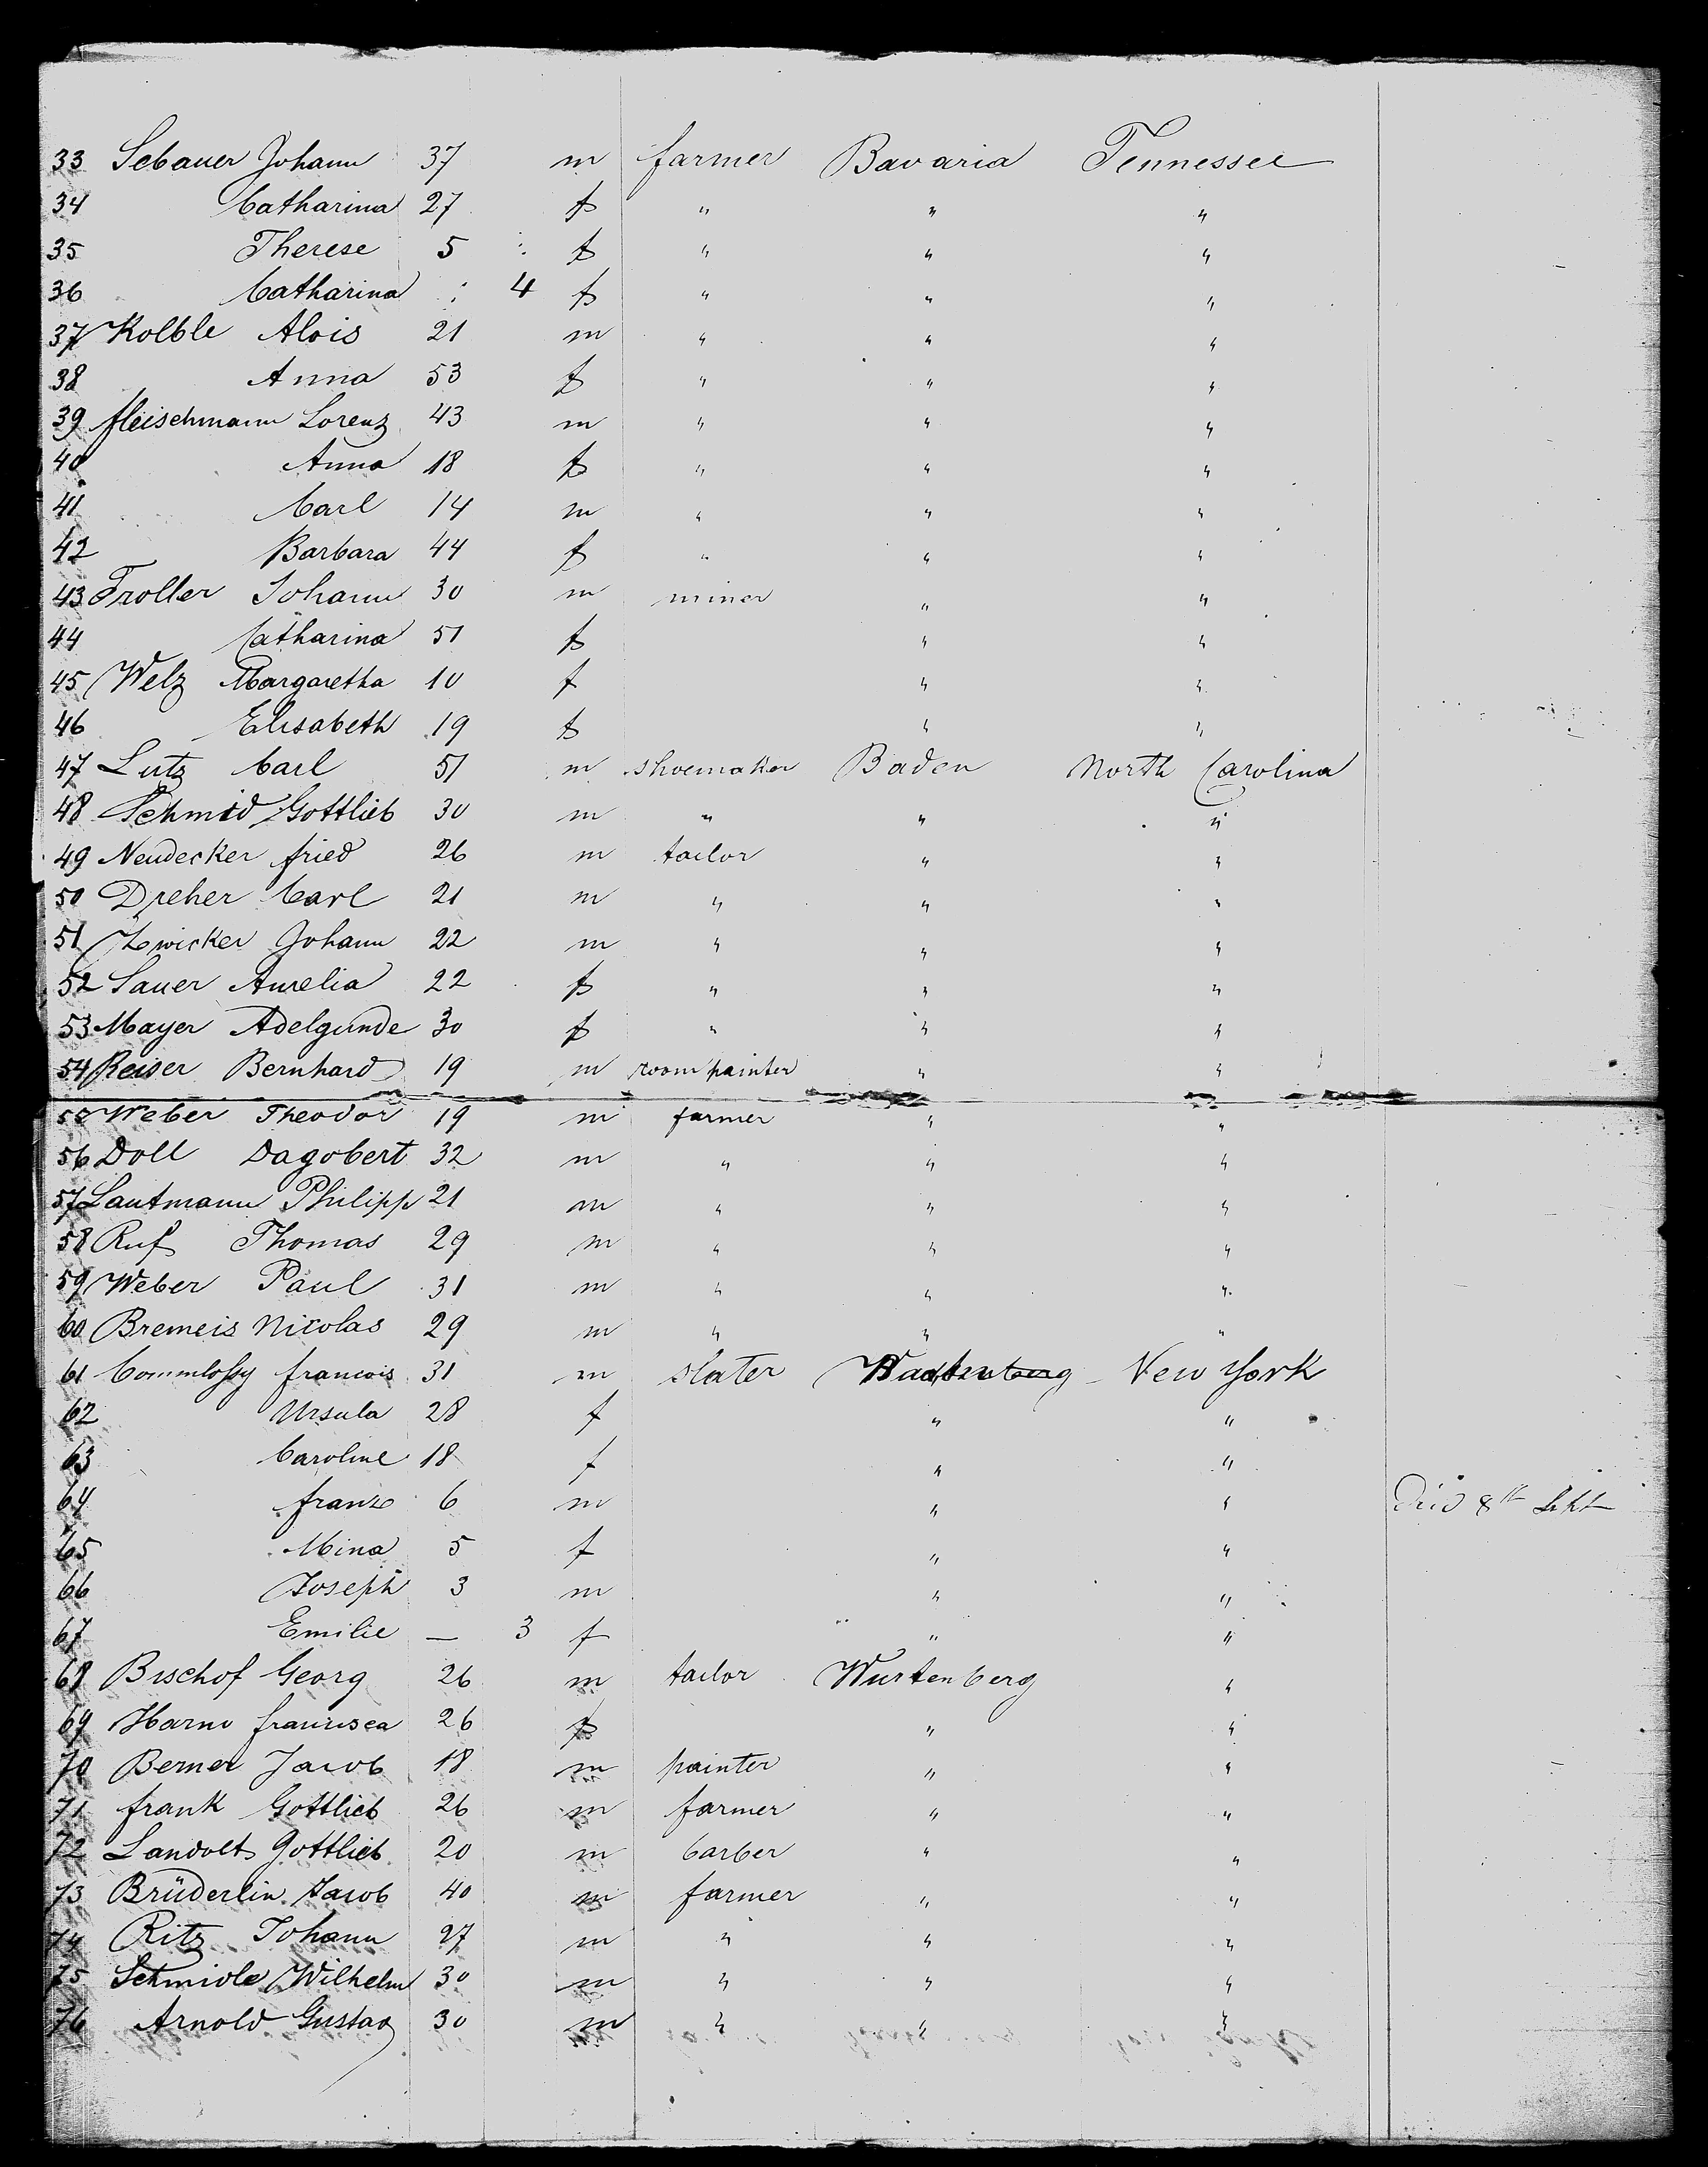 33 Sebauer Johann 37 m farmer Bavaria Tennessee
34 Catharina 27 f " " "
35 Therese 5 : f " " "
36 Catharina : 4 f " " "
37 Kolble Alois 21 m " " "
38 Anna 53 f " " "
39 fleischmann Lorenz 43 m " " "
40 Anna 18 f " " "
41 Carl 14 m " " "
42 Barbara 44 f " " "
43 Troller Johann 30 m miner " "
44 Catharina 51 f " "
45 Welz Margaretha 10 f " "
46 Elisabeth 19 f " "
47 Lutz Carl 51 m shoemaker Baden North Carolina
48 Schmid Gottlieb 30 m " " "
49 Neudecker fried 26 m tailor " "
50 Dreher Carl 21 m " " "
51 Zwicker Johann 22 m " " "
52 Sauer Aurelia 22 f " " "
53 Mayer Adelgunde 30 f " " "
54 Reiser Bernhard 19 m room painter " "
55 Weber Theodor 19 m farmer " "
56 Doll Dagobert 32 m " " "
57 Lautmann Philipp 21 m " " "
58 Ruf Thomas 29 m " " "
59 Weber Paul 31 m " " "
60 Bremeis Nicolas 29 m " " "
61 francois 31 m slater New York
62 Ursula 28 f " "
63 Caroline 18 f " "
64 franz 6 m " " Died 8th
65 Mina 5 f " "
66 Joseph 3 m " "
67 Emilie — 3 f " "
68 Bischof Georg 26 m tailor Wurtenberg "
69 francisca 26 f " "
70 Berner Jacob 18 m painter " "
71 frank Gottlieb 26 m farmer " "
72 Landolt Gottlieb 20 m barber " "
73 Brüderlin Jacob 40 m farmer " "
74 Ritz Johann 27 m " " "
75 Schmidle Wilhelm 30 m " " "
76 Arnold Gustav 30 m " " "